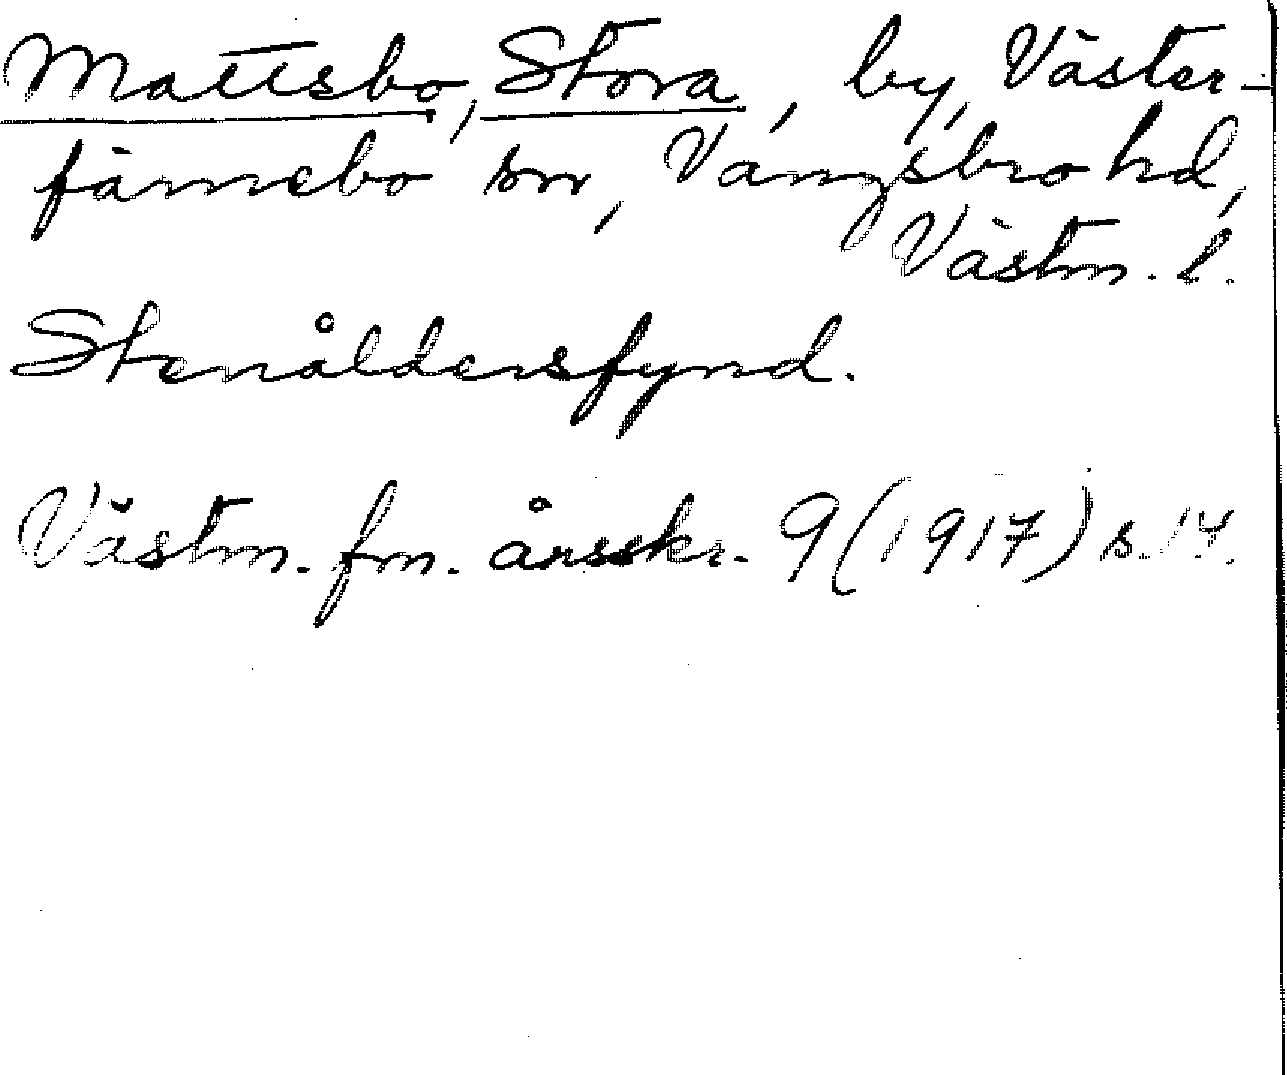 Mattsbo, Stora, by, Väster-
färnebo sn, Vangsbro hd,
Västm. l.
Stenåldersfynd.
Västm. fm. årsskr. 9 (1917) s. 14.